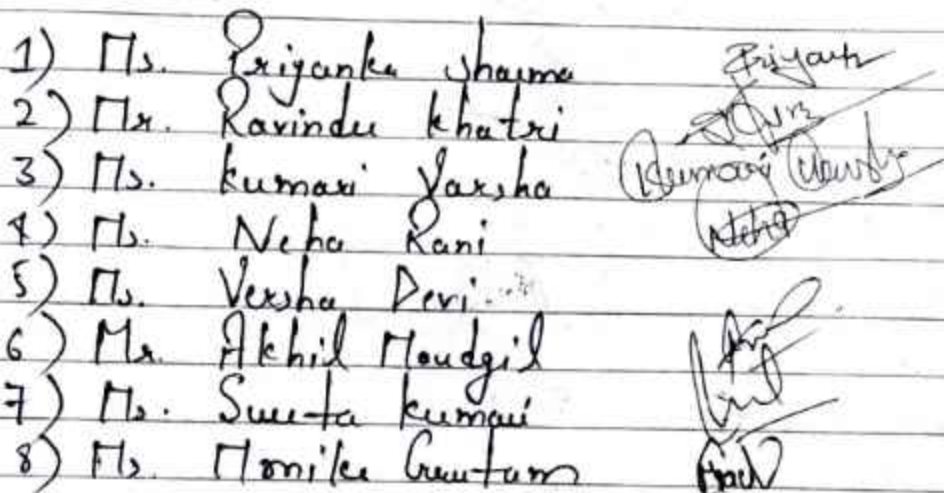 1) Ms. Priyanka Sharma Priyank
2) Mr. Ravinder Khatri
3) Ms. Kumari Varsha Kumari
4) Ms. Neha Rani Neha
5) Ms. Versha Devi
6) Mr. Akhil Moudgil
7) Ms. Sunita Kumari
8) Ms. Monika Gautam